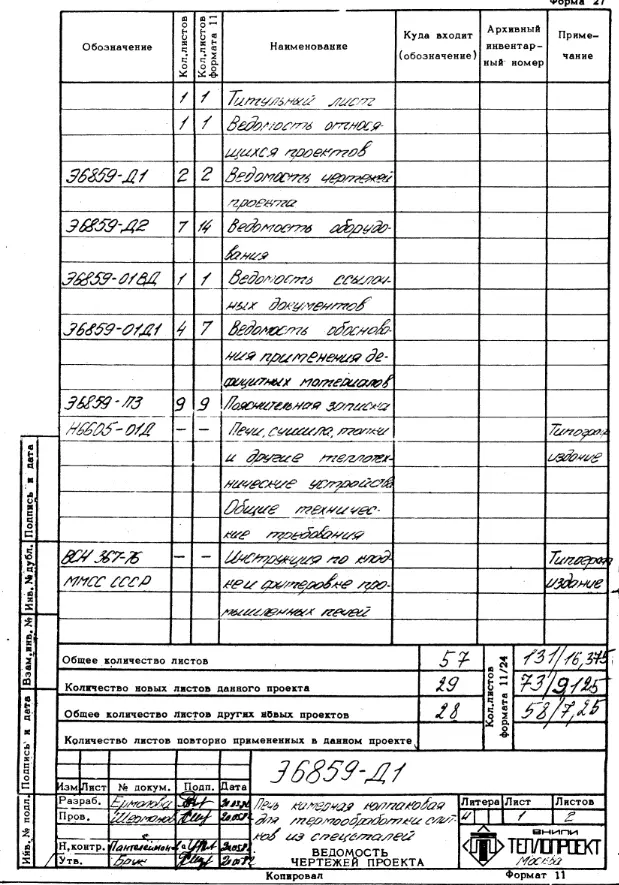 Форма 27
Обозначение Кол.листов Кол.листов формата 11 Наименование Куда входит (обозначение) Архивный инвентар-ный номер Приме-чание
1 1 Титульный лист
1 1 Ведомость относя-
щихся проектов
Э6859-Д1 2 2 Ведомость чертежей
проекта
Э6859-Д2 7 14 Ведомость оборудо-
вания
Э6859-01ВД 1 1 Ведомость ссылоч-
ных документов
Э6859-01Д1 4 7 Ведомость обоснова-
ния применения де-
фицитных материалов
Э6859-ПЗ 9 9 Пояснительная записка
Н6605-01Д — — Печи, сушила, топки Типограф
и другие теплотех- издание
нические устройства
Общие техничес-
кие требования
ВСН 367-76 — — Инструкция по клад- Типограф
ММСС СССР ке и футеровке про- издание
мышленных печей
Общее количество листов 57 Кол.листов формата 11/24 131/16,375
Количество новых листов данного проекта 29 73/9,125
Общее количество листов других новых проектов 28 58/7,25
Количество листов повторно примененных в данном проекте
Э6859-Д1
Изм Лист № докум. Подп. Дата
Разраб. Ермолова
Пров.
Н.контр. Пантелеймон
Утв. Брик
Печь камерная колпаковая
для термообработки слит-
ков из спецсталей
ВЕДОМОСТЬ
ЧЕРТЕЖЕЙ ПРОЕКТА
Литера Лист Листов
И 1 2
ВНИПИ
ТЕПЛОПРОЕКТ
Москва
Копировал Формат 11
Инв.№ подл. Подпись и дата Взам.инв.№ Инв.№ дубл. Подпись и дата